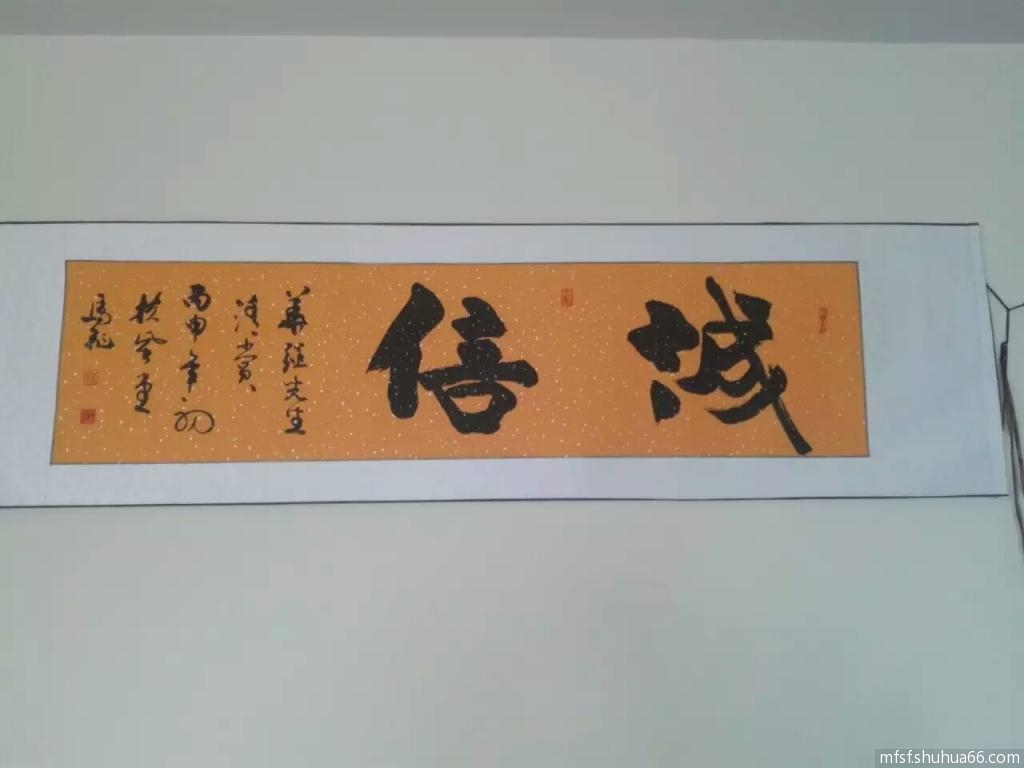 诚信
华强先生
清赏
丙申年初
马飞
mfsf.shuhua66.com